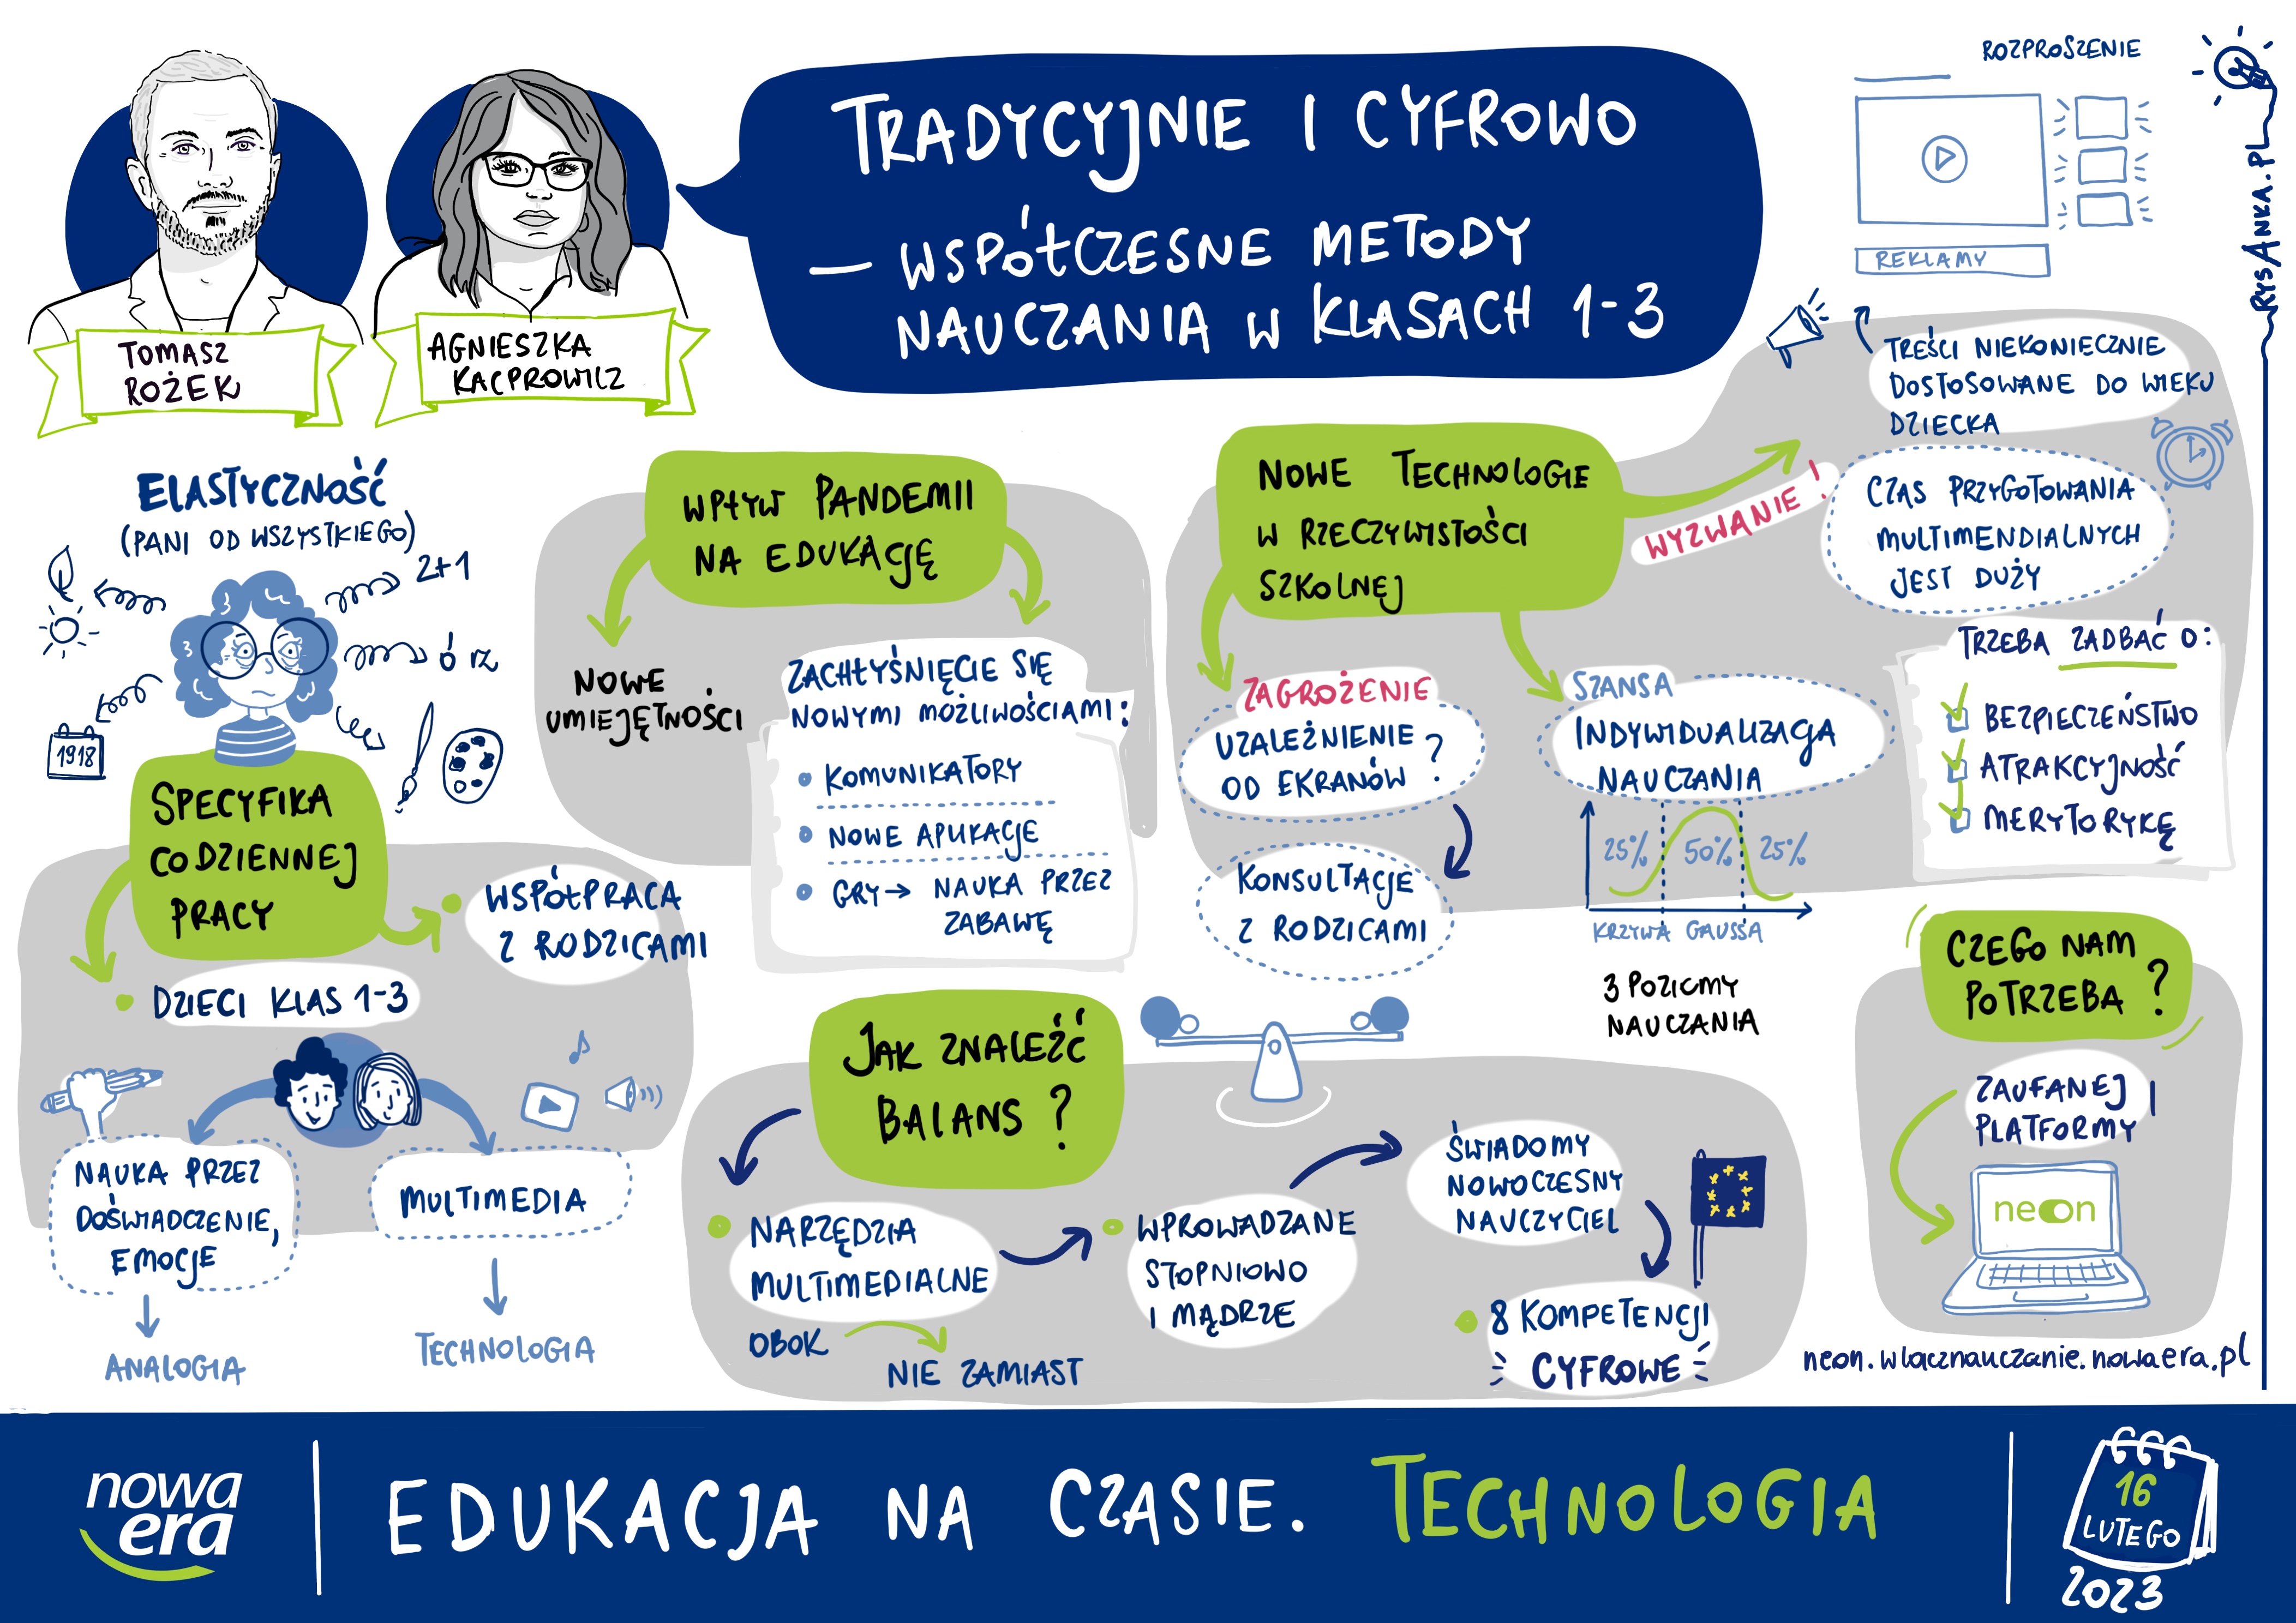 TRADYCYJNIE I CYFROWO
— WSPÓŁCZESNE METODY
NAUCZANIA W KLASACH 1-3
TOMASZ
ROŻEK
AGNIESZKA
KACPROWICZ
ROZPROSZENIE
REKLAMY
RYSANKA.PL
TREŚCI NIEKONIECZNIE
DOSTOSOWANE DO WIEKU
DZIECKA
ELASTYCZNOŚĆ
(PANI OD WSZYSTKIEGO)
2+1
Ó RZ
1918
SPECYFIKA
CODZIENNEJ
PRACY
WSPÓŁPRACA
Z RODZICAMI
DZIECI KLAS 1-3
NAUKA PRZEZ
DOŚWIADCZENIE,
EMOCJE
ANALOGIA
MULTIMEDIA
TECHNOLOGIA
WPŁYW PANDEMII
NA EDUKACJĘ
NOWE
UMIEJĘTNOŚCI
ZACHŁYŚNIĘCIE SIĘ
NOWYMI MOŻLIWOŚCIAMI:
KOMUNIKATORY
NOWE APLIKACJE
GRY → NAUKA PRZEZ
ZABAWĘ
NOWE TECHNOLOGIE
W RZECZYWISTOŚCI
SZKOLNEJ
WYZWANIE!
CZAS PRZYGOTOWANIA
MULTIMENDIALNYCH
JEST DUŻY
TRZEBA ZADBAĆ O:
BEZPIECZEŃSTWO
ATRAKCYJNOŚĆ
MERYTORYKĘ
ZAGROŻENIE
UZALEŻNIENIE
OD EKRANÓW ?
KONSULTACJE
Z RODZICAMI
SZANSA
INDYWIDUALIZACJA
NAUCZANIA
25% 50% 25%
KRZYWA GAUSSA
3 POZIOMY
NAUCZANIA
JAK ZNALEŹĆ
BALANS ?
NARZĘDZIA
MULTIMEDIALNE
OBOK
NIE ZAMIAST
WPROWADZANE
STOPNIOWO
I MĄDRZE
ŚWIADOMY
NOWOCZESNY
NAUCZYCIEL
8 KOMPETENCJI
CYFROWE
CZEGO NAM
POTRZEBA ?
ZAUFANEJ
PLATFORMY
neon
neon.wlacznauczanie.nowaera.pl
nowa
era
EDUKACJA NA CZASIE. TECHNOLOGIA
16
LUTEGO
2023